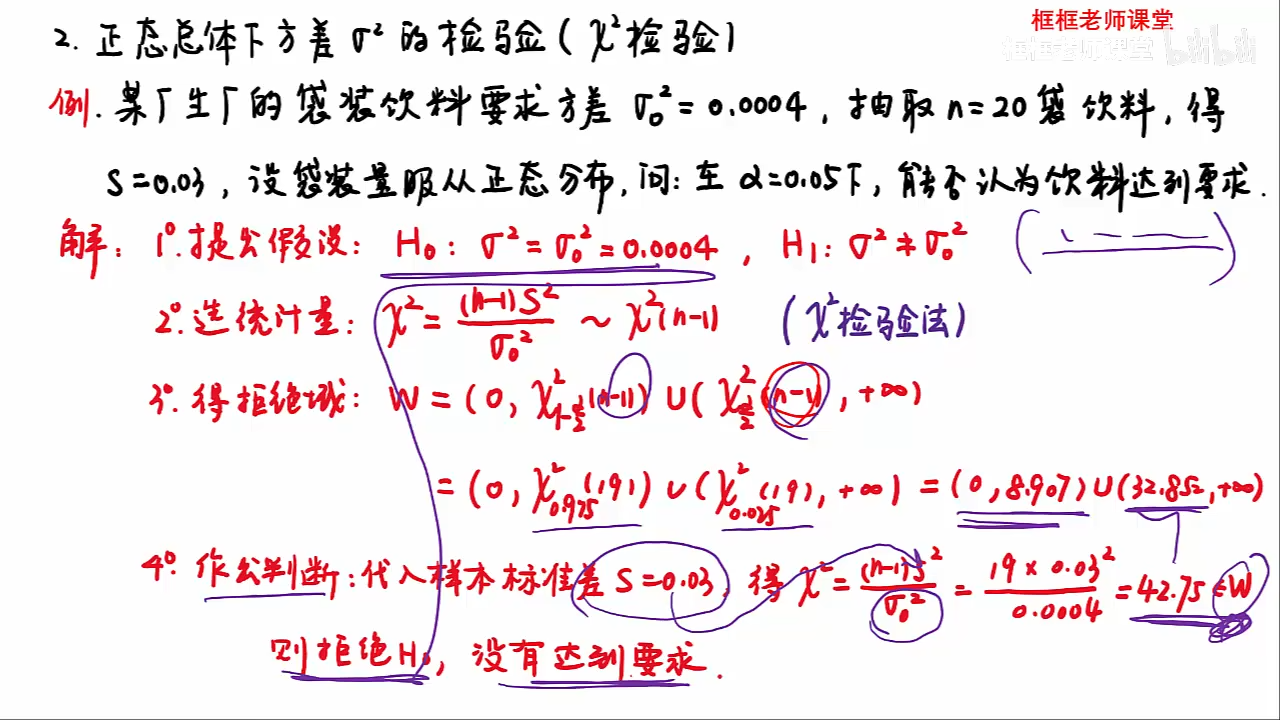 框框老师课堂
框框老师课堂 bilibili
2. 正态总体下方差 σ² 的检验 (χ²检验)
例. 某厂生厂的袋装饮料要求方差 σ₀² = 0.0004, 抽取 n=20 袋饮料, 得
S=0.03, 设袋装量服从正态分布, 问: 在 α=0.05下, 能否认为饮料达到要求.
解: 1°. 提出假设: H₀: σ² = σ₀² = 0.0004, H₁: σ² ≠ σ₀²
2°. 选统计量: χ² = (n-1)S²/σ₀² ~ χ²(n-1) (χ²检验法)
3°. 得拒绝域: W = (0, χ²_{1-α/2}(n-1)) ∪ (χ²_{α/2}(n-1), +∞)
= (0, χ²_{0.975}(19)) ∪ (χ²_{0.025}(19), +∞) = (0, 8.907) ∪ (32.852, +∞)
4°. 作出判断: 代入样本标准差 S=0.03, 得 χ² = (n-1)S²/σ₀² = 19×0.03²/0.0004 = 42.75 ∈ W
则拒绝H₀, 没有达到要求.